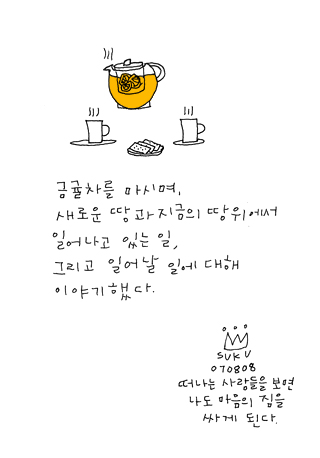 금귤차를 마시며,
새로운 땅과 지금의 땅위에서
일어나고 있는 일,
그리고 일어날 일에 대해
이야기했다.
SUKU
070808
떠나는 사람들을 보면
나도 마음의 짐을
싸게 된다.